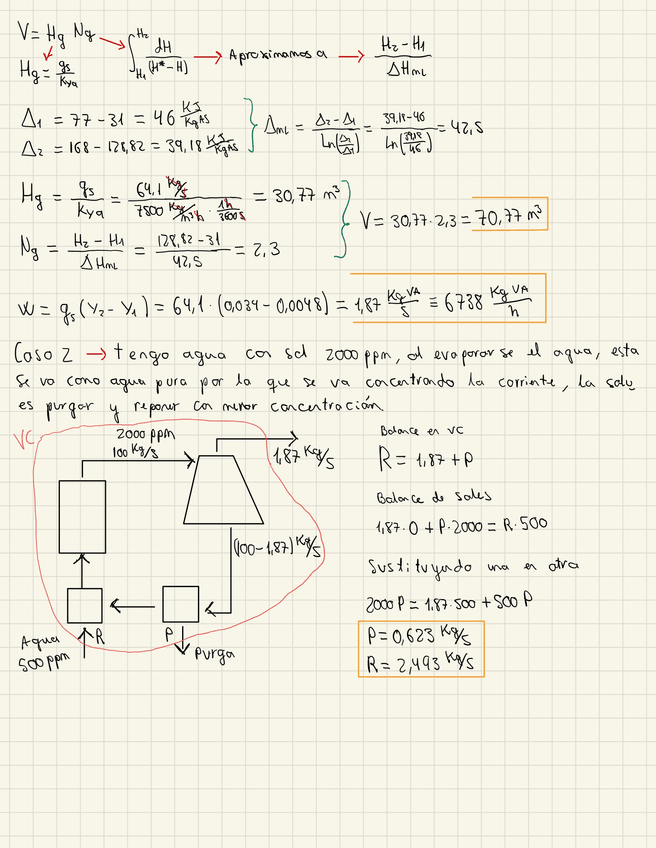 V = Hg Ng → ∫_{H1}^{H2} dH/(H* - H) → Aproximamos a → (H2 - H1)/ΔHmL
Hg = gs/Kya
Δ1 = 77 - 31 = 46 KJ/KgAS
Δ2 = 168 - 128,82 = 39,18 KJ/KgAS
ΔmL = (Δ2 - Δ1)/Ln(Δ2/Δ1) = (39,18 - 46)/Ln(39,18/46) = 42,5
Hg = gs/Kya = (64,1 Kg/s)/(7500 Kg/m³h · 1h/3600s) = 30,77 m³
Ng = (H2 - H1)/ΔHmL = (128,82 - 31)/42,5 = 2,3
V = 30,77 · 2,3 = 70,77 m³
W = gs (Y2 - Y1) = 64,1 · (0,034 - 0,0048) = 1,87 KgVA/s ≡ 6738 KgVA/h
Caso 2 → tengo agua con sal 2000 ppm, al evaporarse el agua, esta
se va como agua pura por la que se va concentrando la corriente, la solu
es purgar y reponer con menor concentración.
VC
2000 ppm
100 Kg/s
1,87 Kg/s
(100 - 1,87) Kg/s
Agua
500 ppm
R
P
Purga
Balance en VC
R = 1,87 + P
Balance de sales
1,87·0 + P·2000 = R·500
Sustituyendo una en otra
2000 P = 1,87·500 + 500 P
P = 0,623 Kg/s
R = 2,493 Kg/s